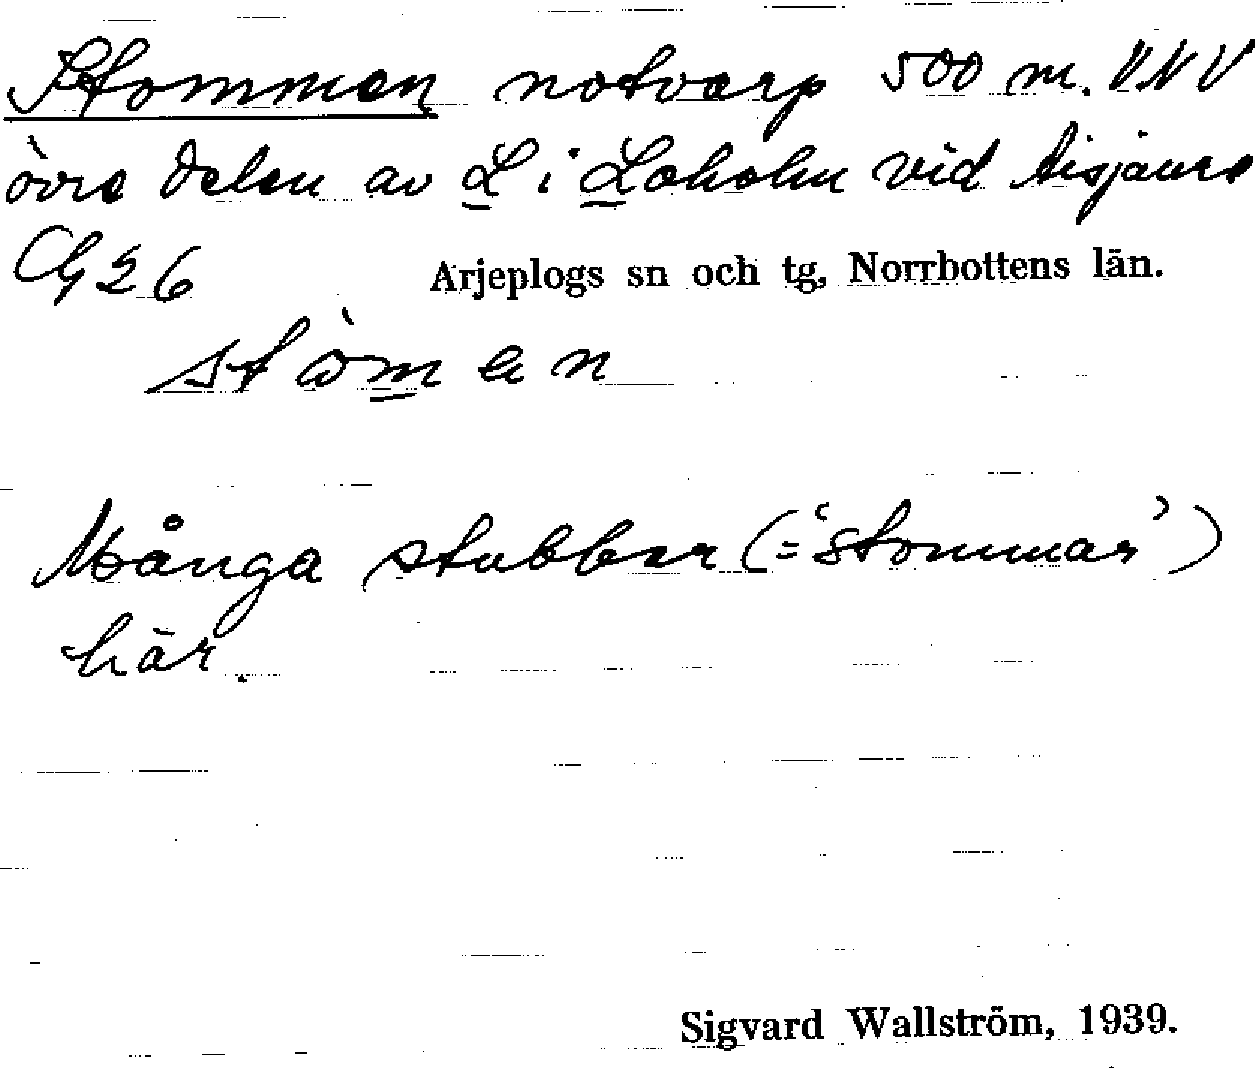 Stommen notvarp 500 m. VNV
övre delen av L i Loholm vid Aisjaure
G 26
Arjeplogs sn och tg, Norrbottens län.
stòmen
Många stubbar (= 'stommar')
här.
Sigvard Wallström, 1939.